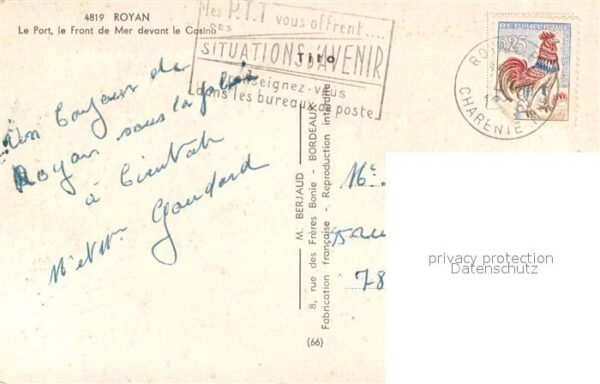 4819 ROYAN
Le Port, le Front de Mer devant le Casino
les P.T.T vous offrent....
DES
SITUATIONS D'AVENIR
Tito
renseignez-vous
dans les bureaux de poste
0,25
RO
CHARENTE
Un bonjour de
Royan sous la pluie
à bientôt
Mr et Mme Gaudard
M. BERJAUD
8, rue des Frères Bonie - BORDEAUX
Fabrication française - Reproduction interdite
(66)
78
privacy protection
Datenschutz